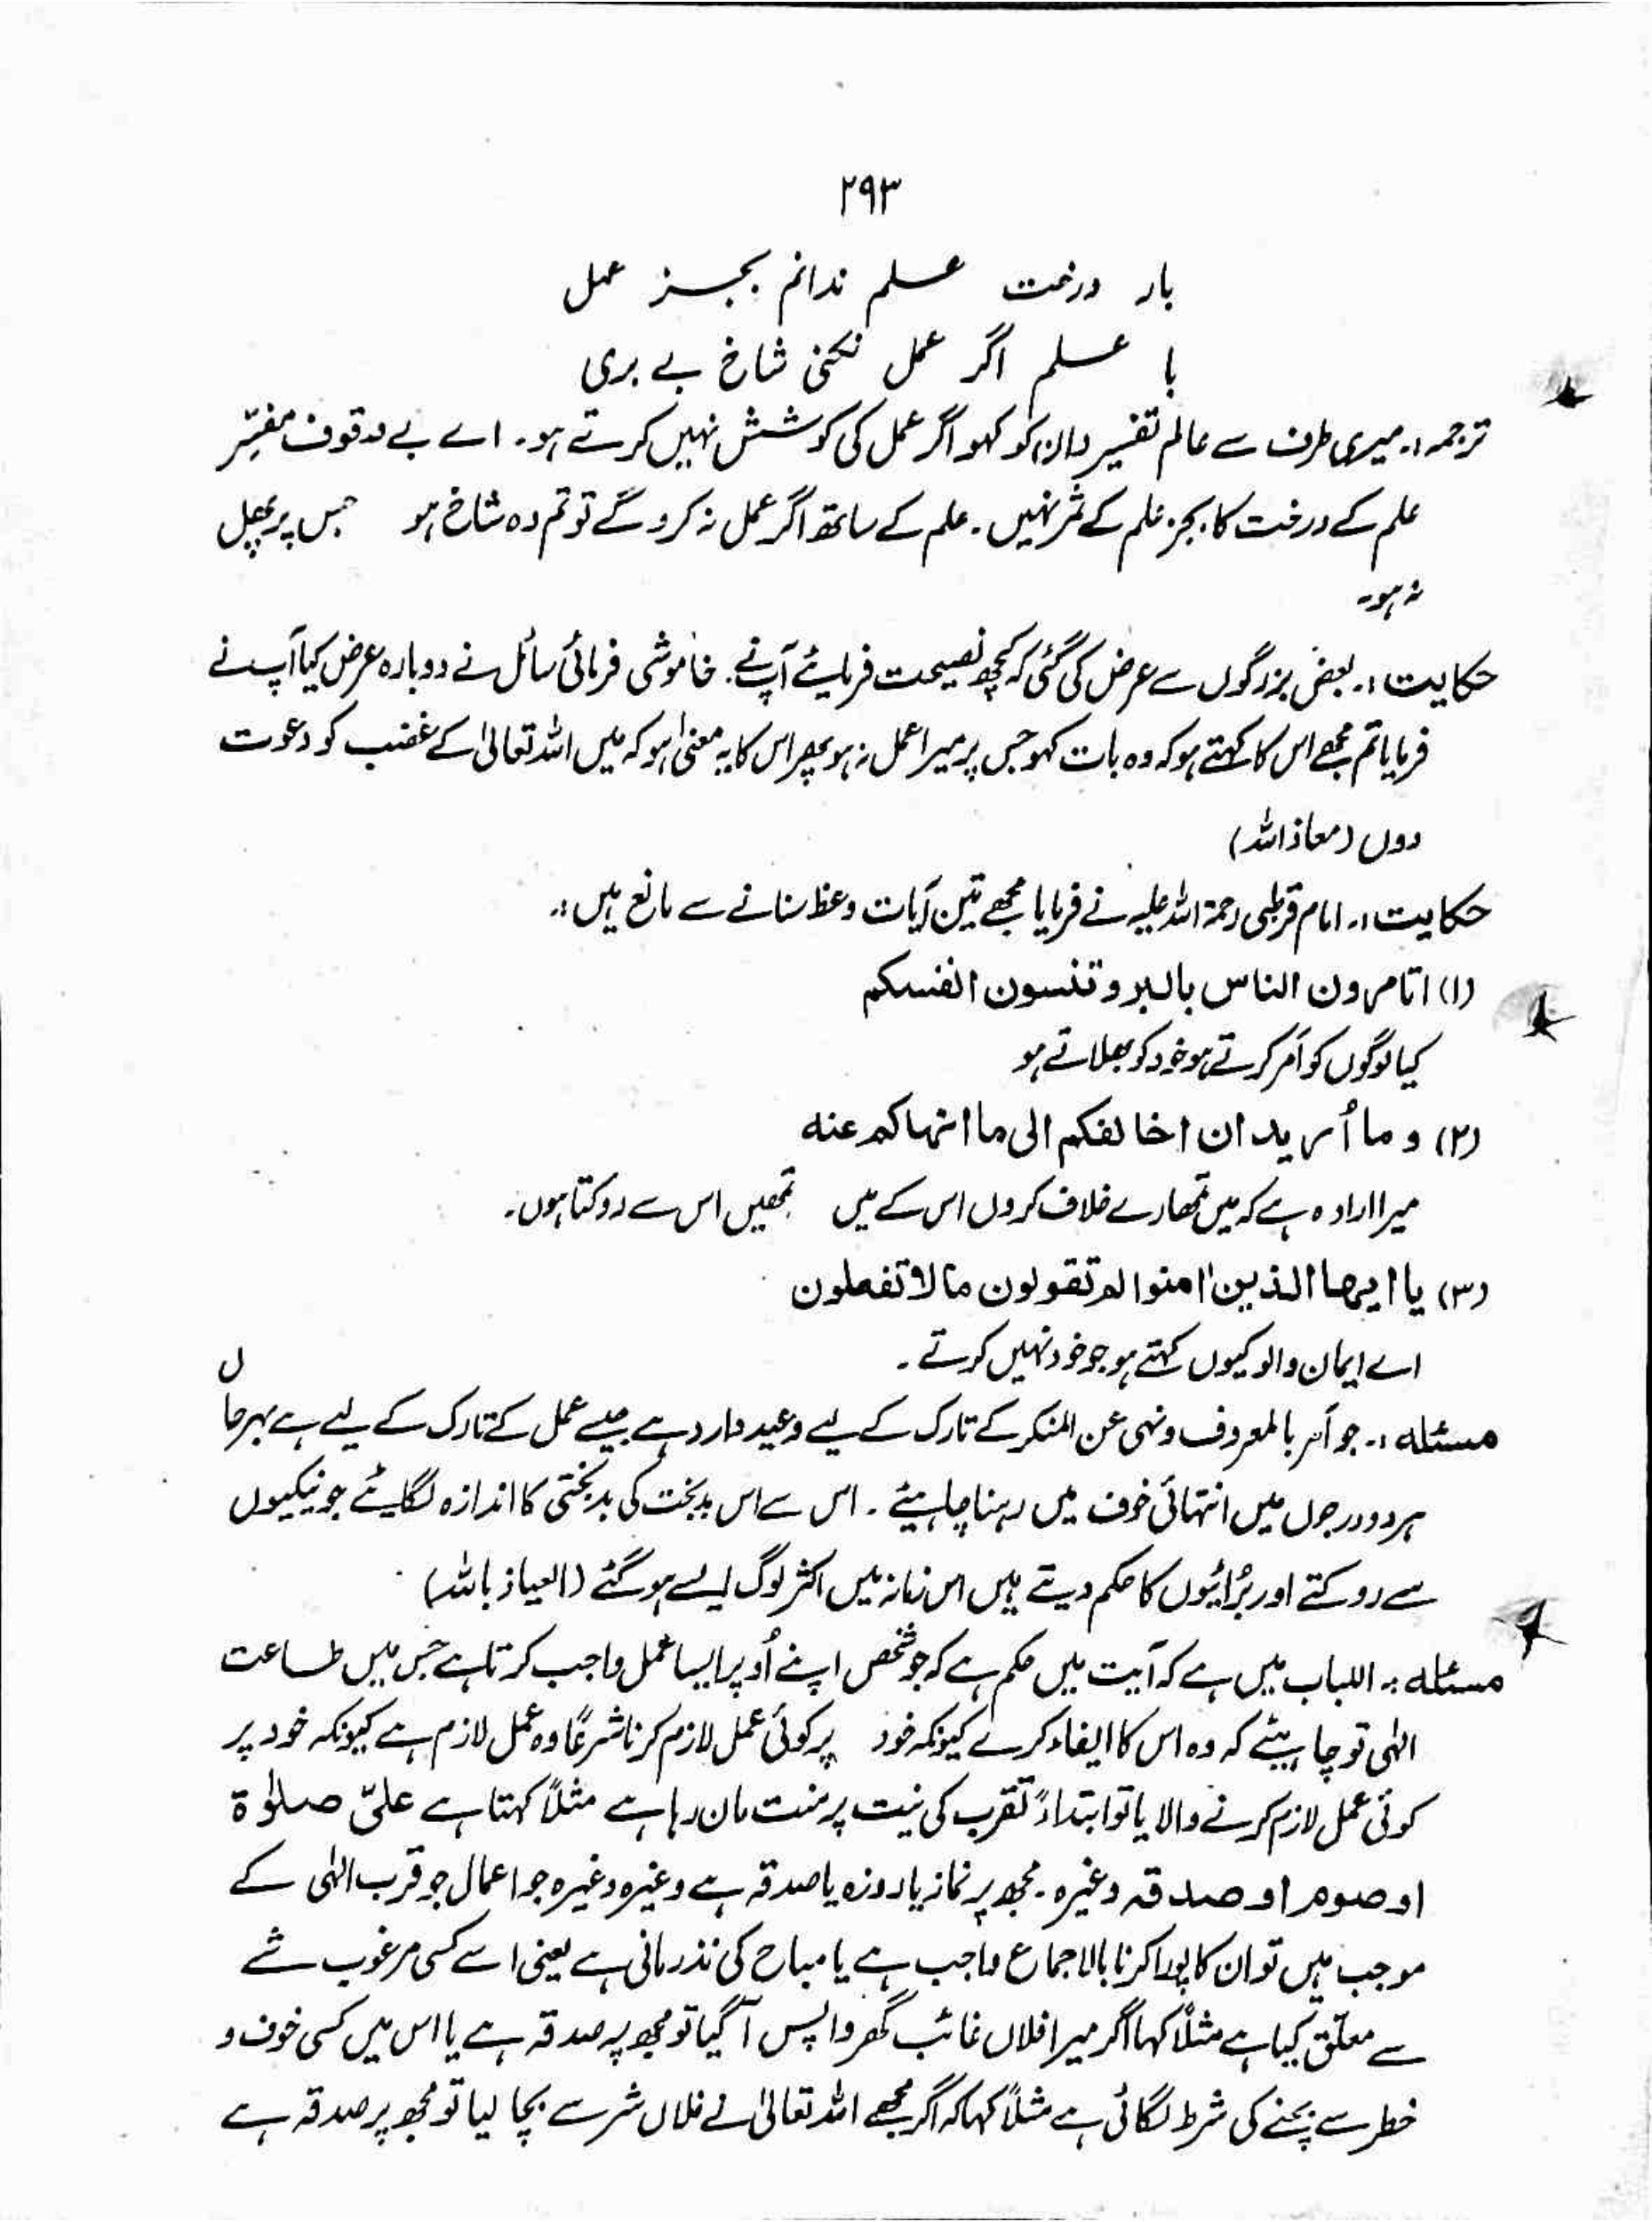 ۲۹۳
بار درخت علم ندانم بجز عمل
با علم اگر عمل نکنی شاخ بے بری
ترجمہ:۔ میری طرف سے عالم تفسیر دان کو کہو اگر عمل کی کوشش نہیں کرتے ہو۔ اے بے وقوف مفسّر
علم کے درخت کا بجز علم کے ثمر نہیں۔ علم کے ساتھ اگر عمل نہ کرو گے تو تم وہ شاخ ہو جس پر پھل
نہ ہو۔
حکایت:۔ بعض بزرگوں سے عرض کی گئی کہ کچھ نصیحت فرمایئے آپ نے۔ خاموشی فرمائی سائل نے دوبارہ عرض کیا آپ نے
فرمایا تم مجھے اس کا کہتے ہو کہ وہ بات کہو جس پر میرا عمل نہ ہو پھر اس کا یہ معنیٰ ہو کہ میں اللہ تعالیٰ کے غضب کو دعوت
دوں (معاذ اللہ)
حکایت:۔ امام قرطبی رحمۃ اللہ علیہ نے فرمایا مجھے تین آیات وعظ سنانے سے مانع ہیں:۔
(۱) اتامرون الناس بالبر وتنسون انفسکم
کیا لوگوں کو اَمر کرتے ہو خود کو بھلاتے ہو
(۲) و ما اُرید ان اخالفکم الی ما انہاکم عنہ
میرا ارادہ ہے کہ میں تمھارے خلاف کروں اس کے میں تمھیں اس سے روکتا ہوں۔
(۳) یا ایھا الذین اٰمنوا لم تقولون ما لا تفعلون
اے ایمان والو کیوں کہتے ہو جو خود نہیں کرتے۔
مسئلہ:۔ جو اَمر بالمعروف ونہی عن المنکر کے تارک کے لیے وعید وارد ہے جیسے عمل کے تارک کے لیے ہے بہرحال
ہر دو درجوں میں انتہائی خوف میں رہنا چاہیئے۔ اس سے اس بدبخت کی بدبختی کا اندازہ لگایئے جو نیکیوں
سے روکتے اور بُرائیوں کا حکم دیتے ہیں اس زمانہ میں اکثر لوگ ایسے ہو گئے (العیاذ باللہ)
مسئلہ:۔ اللباب میں ہے کہ آیت میں حکم ہے کہ جو شخص اپنے اُوپر ایسا عمل واجب کرتا ہے جس میں طاعت
الٰہی تو چاہیئے کہ وہ اس کا ایفاء کرے کیونکہ خود پر کوئی عمل لازم کرنا شرعًا وہ عمل لازم ہے کیونکہ خود پر
کوئی عمل لازم کرنے والا یا تو ابتداءً تقرب کی نیت پر منت مان رہا ہے مثلاً کہتا ہے علیّ صلوٰۃ
او صوم او صدقہ وغیرہ۔ مجھ پر نماز یا روزہ یا صدقہ ہے وغیرہ وغیرہ جو اعمال جو قرب الٰہی کے
موجب ہیں تو ان کا پورا کرنا بالاجماع واجب ہے یا مباح کی نذر مانی ہے یعنی اسے کسی مرغوب شے
سے معلّق کیا ہے مثلًا کہا اگر میرا فلاں غائب گھر واپس آ گیا تو مجھ پہ صدقہ ہے یا اس میں کسی خوف و
خطر سے بچنے کی شرط لگائی ہے مثلاً کہا کہ اگر مجھے اللہ تعالیٰ نے فلاں شر سے بچا لیا تو مجھ پر صدقہ ہے